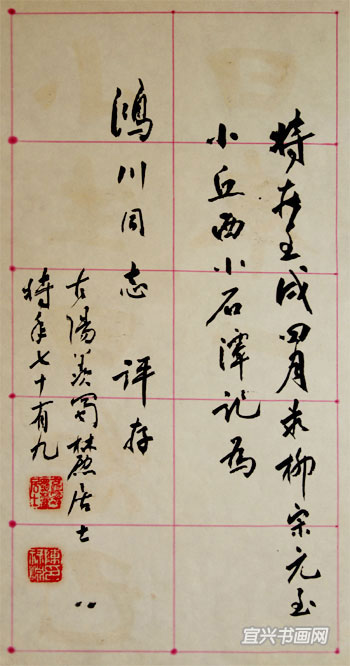 時在壬戌四月录柳宗元至
小丘西小石潭记为
鸿川同志 评存
古陽羨蜀麓居士
時年七十有九
宜兴书画网